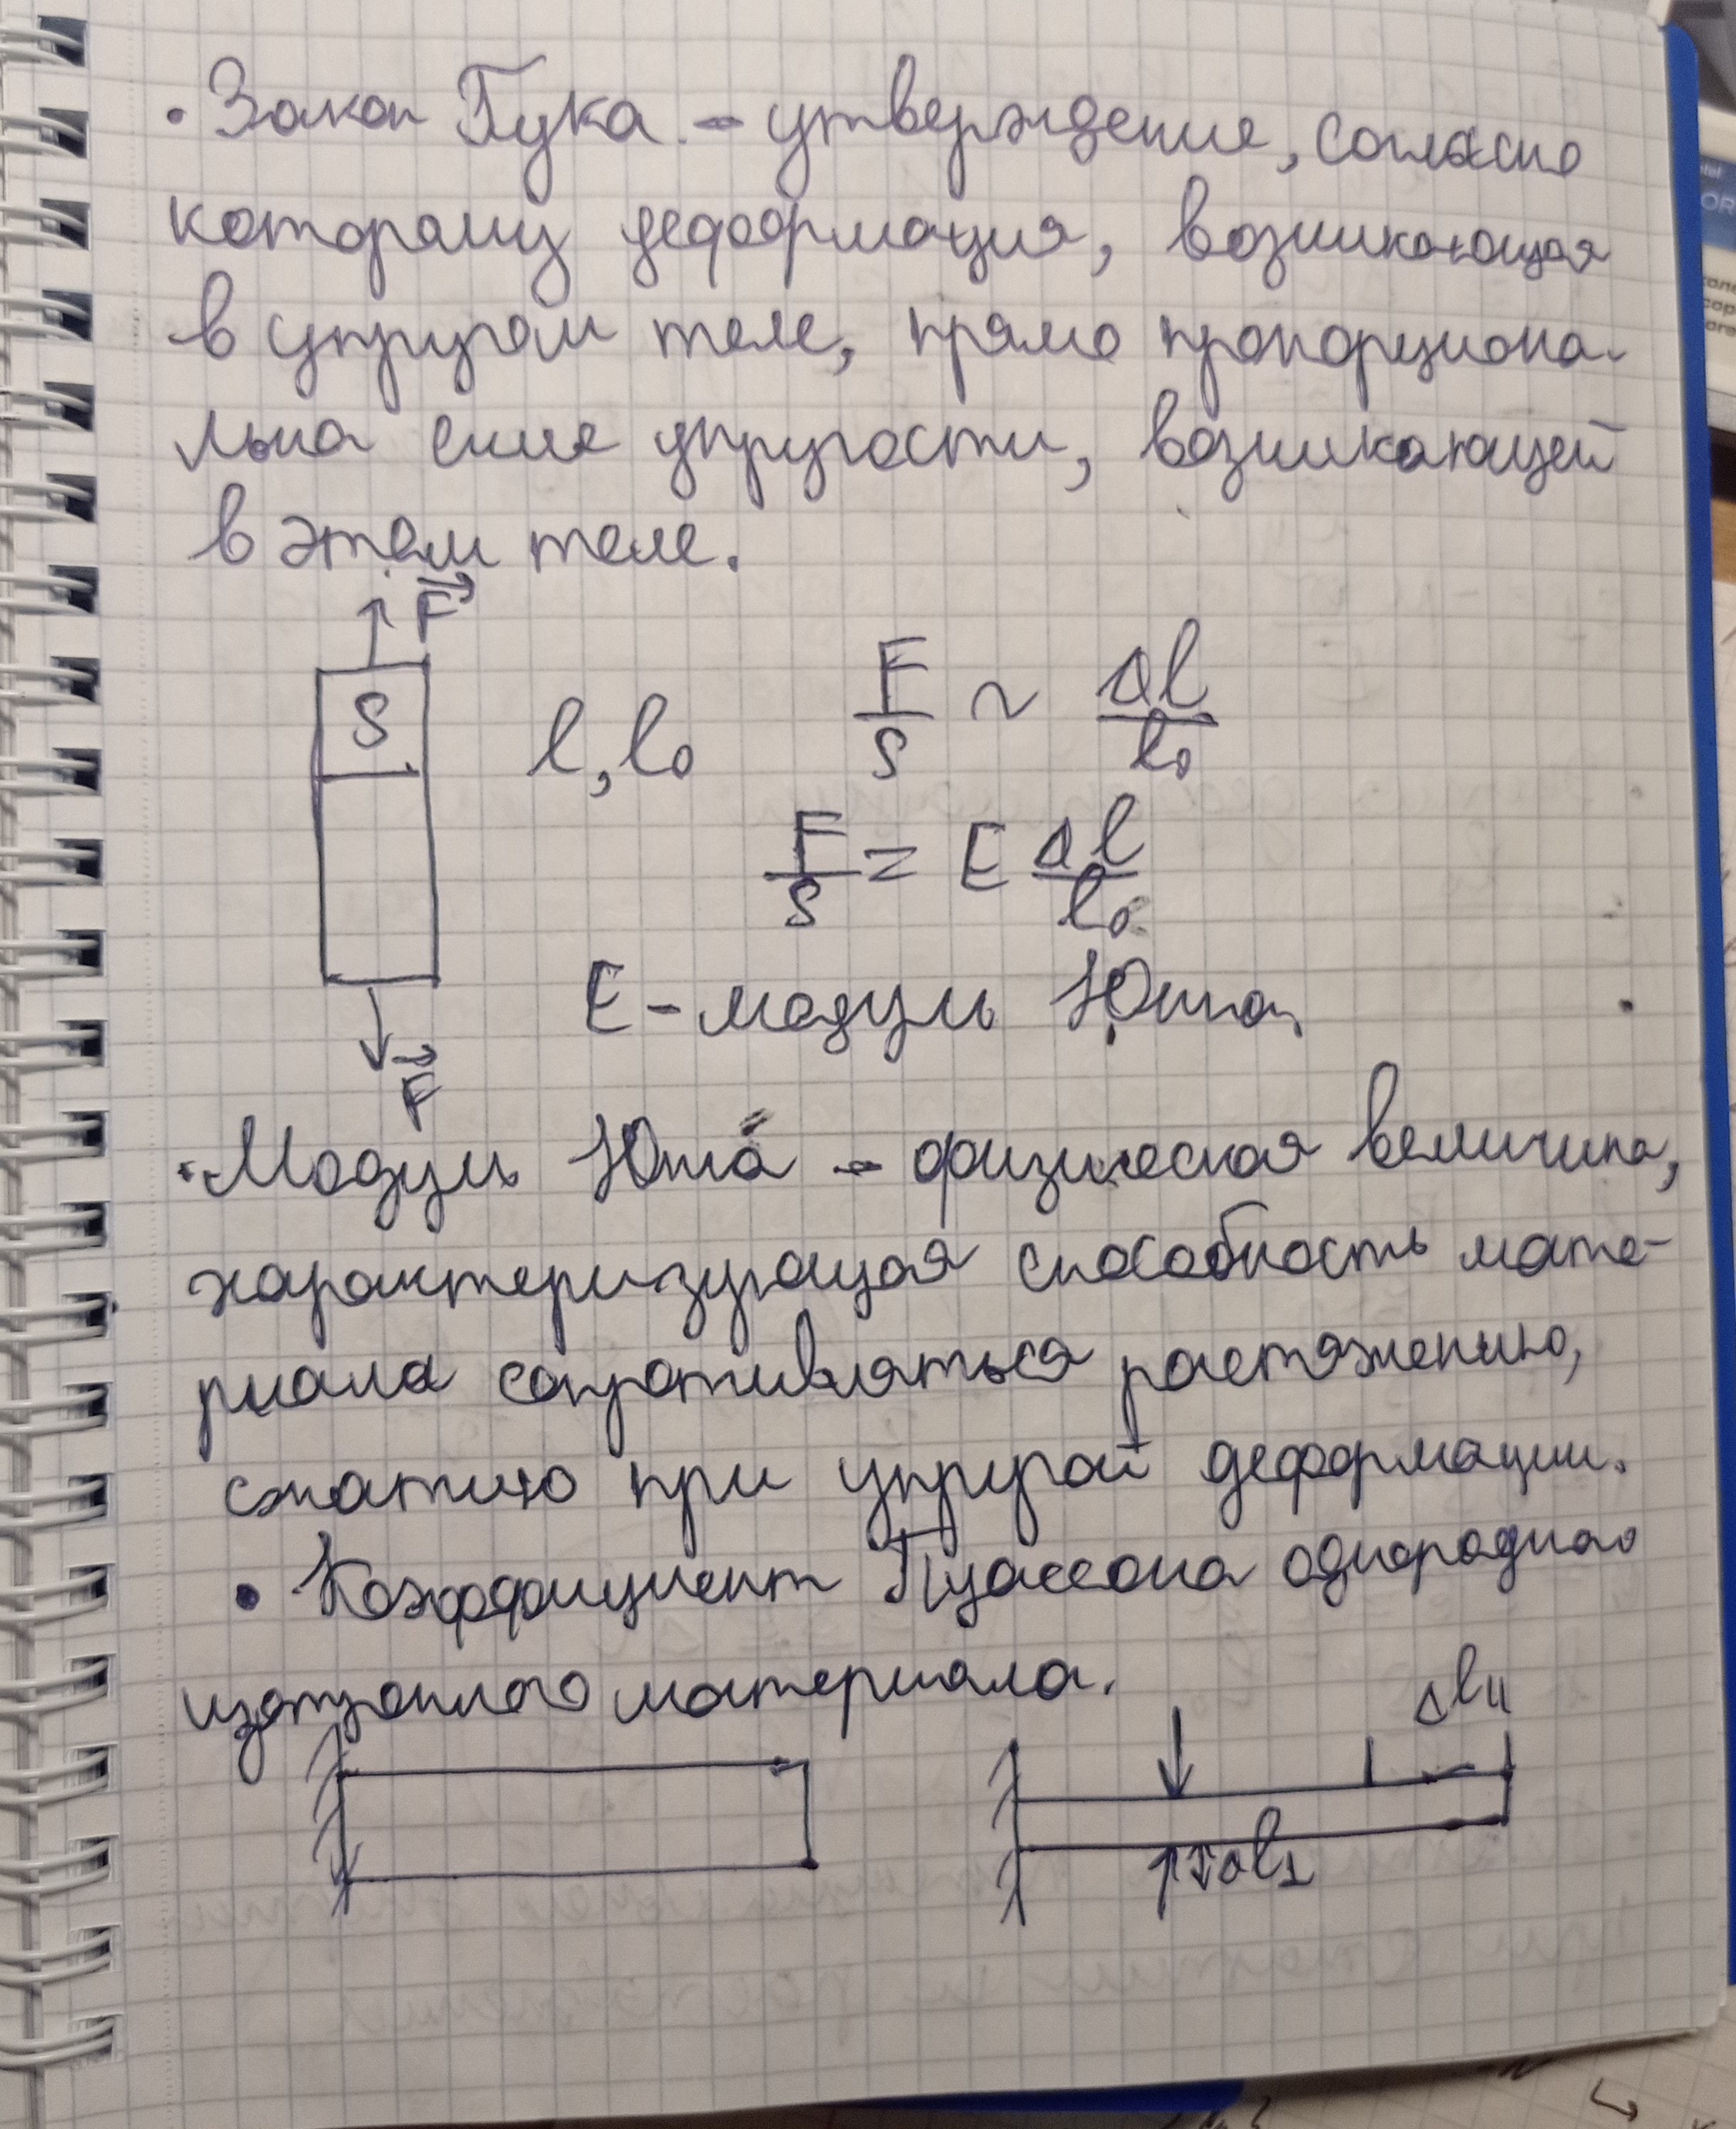 · Закон Гука - утверждение, согласно
которому деформация, возникающая
в упругом теле, прямо пропорциона-
льна силе упругости, возникающей
в этом теле.
F
S
l, l₀
F/S ~ Δl/l₀
F/S = E Δl/l₀
E - модуль Юнга
F
· Модуль Юнга - физическая величина,
характеризующая способность мате-
риала сопротивляться растяжению,
сжатию при упругой деформации.
· Коэффициент Пуассона однородного
изотропного материала.
Δl||
Δl⊥